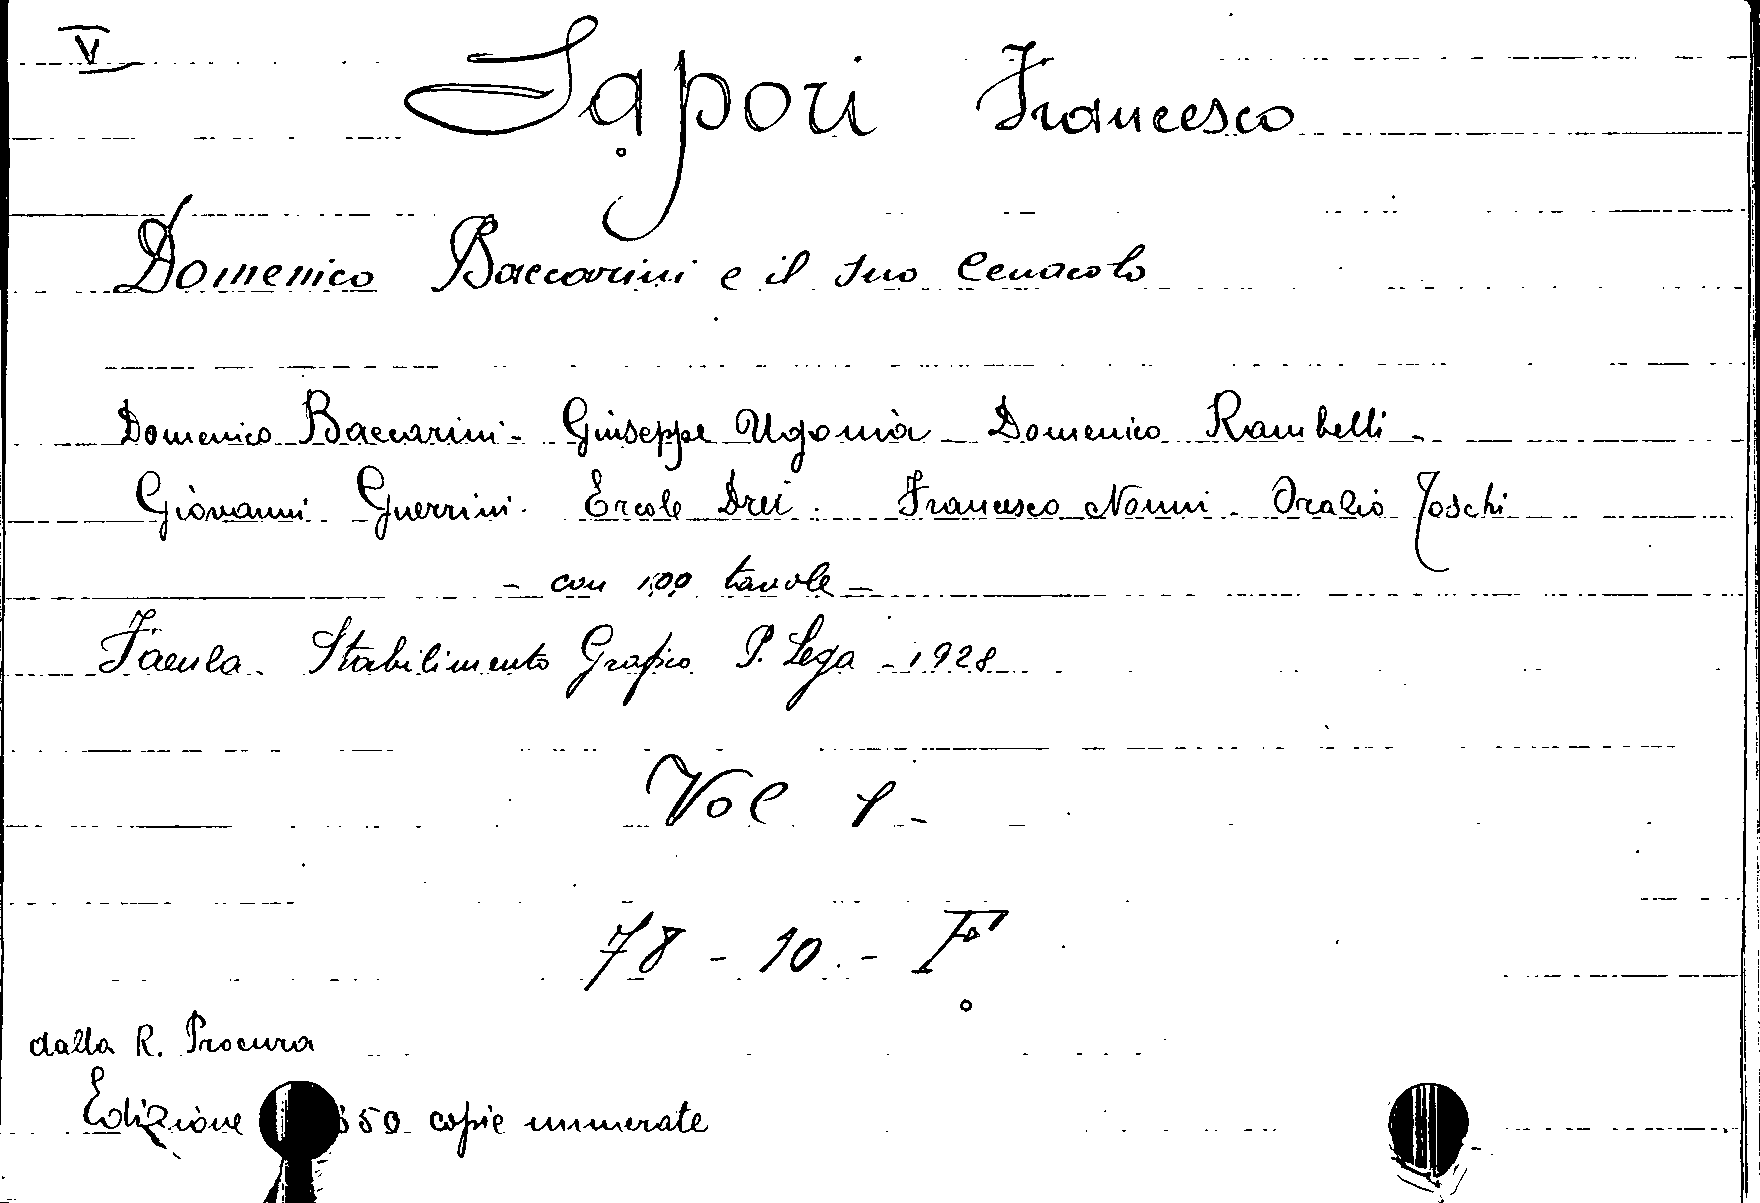 V
Sapori Francesco
Domenico Baccarini e il suo Cenacolo
Domenico Baccarini - Giuseppe Ugonia - Domenico Rambelli -
Giovanni Guerrini - Ercole Drei - Francesco Nonni - Oralio Toschi
- con 100 tavole -
Faenza - Stabilimento Grafico P. Lega - 1928
Vol 1 -
78 - 10 - F
dalla R. Procura
Edizione 550 copie numerate